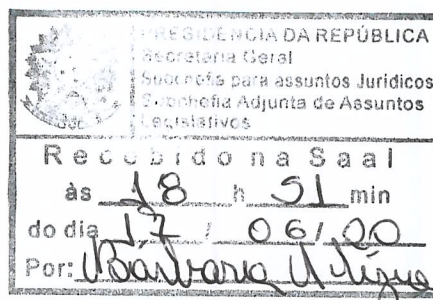 PRESIDÊNCIA DA REPÚBLICA
Secretaria Geral
Subchefia para assuntos Jurídicos
Subchefia Adjunta de Assuntos
Legislativos
Recebido na Saal
às 18 h 51 min
do dia 17 / 06/00
Por: Barbara